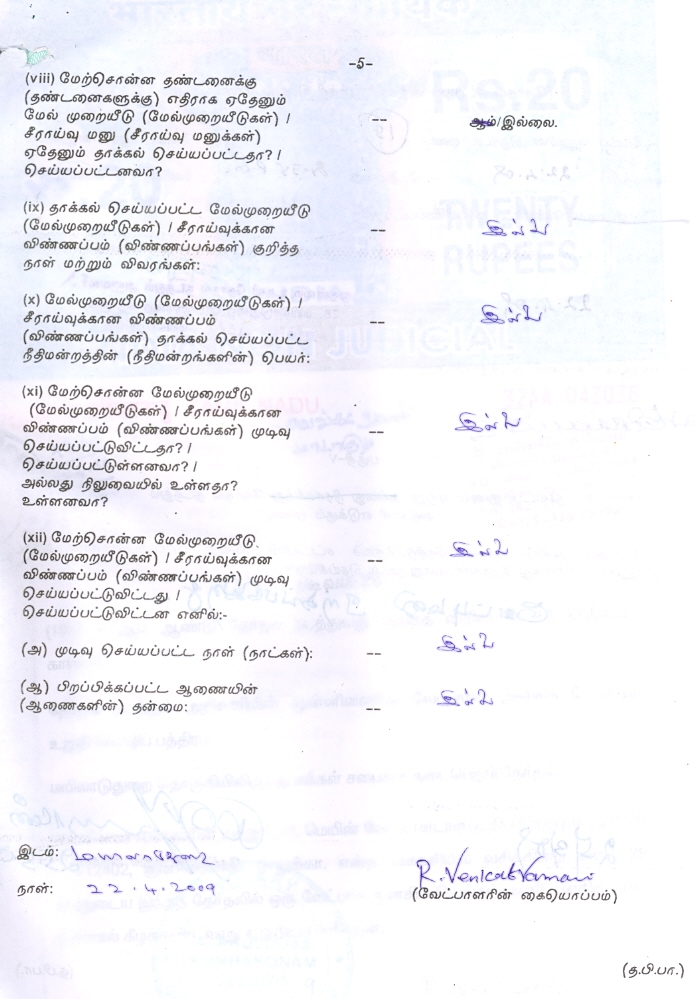 -5-
(viii) மேற்சொன்ன தண்டனைக்கு
(தண்டனைகளுக்கு) எதிராக ஏதேனும்
மேல் முறையீடு (மேல்முறையீடுகள்) / -- ஆம்/இல்லை.
சீராய்வு மனு (சீராய்வு மனுக்கள்)
ஏதேனும் தாக்கல் செய்யப்பட்டதா? /
செய்யப்பட்டனவா?
(ix) தாக்கல் செய்யப்பட்ட மேல்முறையீடு
(மேல்முறையீடுகள்) / சீராய்வுக்கான -- இல்லை
விண்ணப்பம் (விண்ணப்பங்கள்) குறித்த
நாள் மற்றும் விவரங்கள்:
(x) மேல்முறையீடு (மேல்முறையீடுகள்) /
சீராய்வுக்கான விண்ணப்பம் -- இல்லை
(விண்ணப்பங்கள்) தாக்கல் செய்யப்பட்ட
நீதிமன்றத்தின் (நீதிமன்றங்களின்) பெயர்:
(xi) மேற்சொன்ன மேல்முறையீடு
(மேல்முறையீடுகள்) / சீராய்வுக்கான
விண்ணப்பம் (விண்ணப்பங்கள்) முடிவு -- இல்லை
செய்யப்பட்டுவிட்டதா? /
செய்யப்பட்டுள்ளனவா? /
அல்லது நிலுவையில் உள்ளதா?
உள்ளனவா?
(xii) மேற்சொன்ன மேல்முறையீடு
(மேல்முறையீடுகள்) / சீராய்வுக்கான -- இல்லை
விண்ணப்பம் (விண்ணப்பங்கள்) முடிவு
செய்யப்பட்டுவிட்டது /
செய்யப்பட்டுவிட்டன எனில்:-
(அ) முடிவு செய்யப்பட்ட நாள் (நாட்கள்): -- இல்லை
(ஆ) பிறப்பிக்கப்பட்ட ஆணையின்
(ஆணைகளின்) தன்மை: -- இல்லை
இடம்:
நாள்: 22.4.2009
R. Venkatraman
(வேட்பாளரின் கையொப்பம்)
(த.பி.பா.)